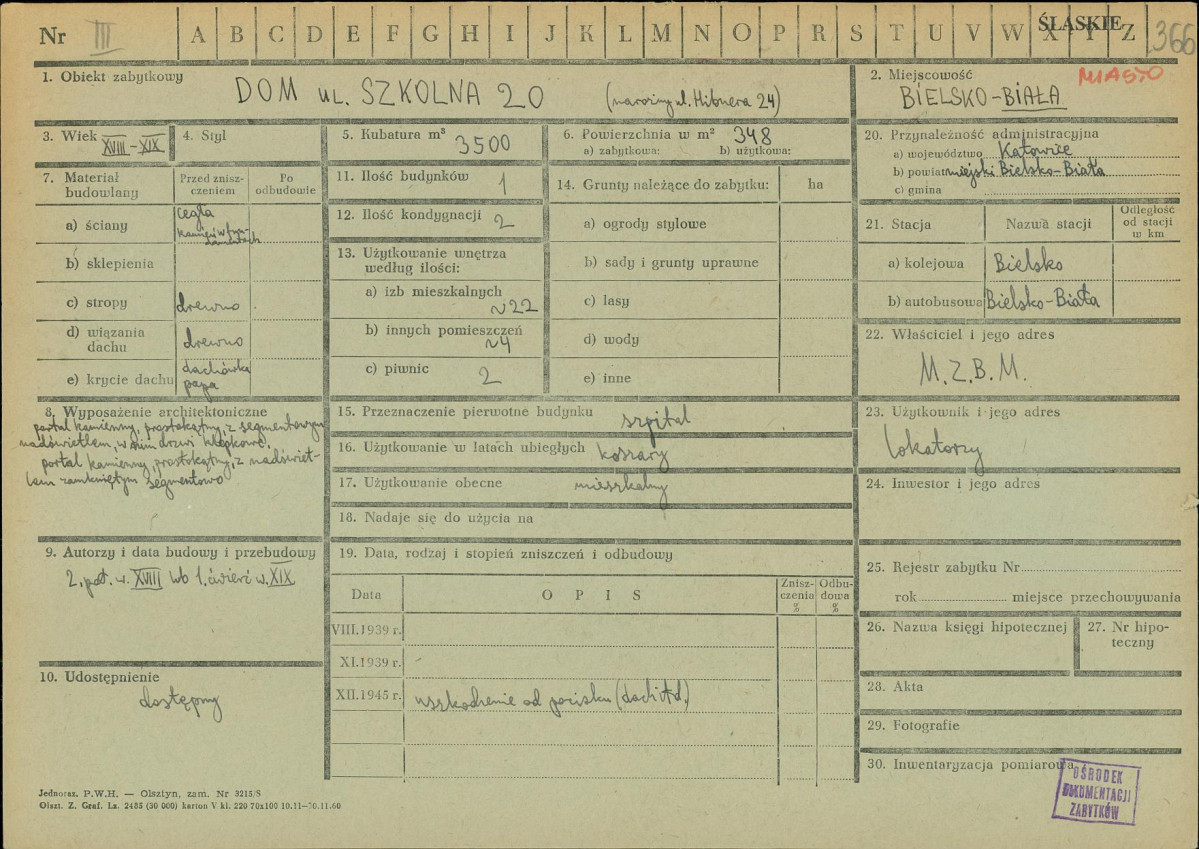 Nr III A B C D E F G H I J K L M N O P R S T U V W X Y Z ŚLĄSKIE 366
1. Obiekt zabytkowy
DOM ul. SZKOLNA 20 (narożny ul. Hibnera 24)
2. Miejscowość MIASTO
BIELSKO-BIAŁA
3. Wiek XVIII-XIX
4. Styl
5. Kubatura m³ 3500
6. Powierzchnia w m² 348
a) zabytkowa: b) użytkowa:
20. Przynależność administracyjna
a) województwo Katowice
b) powiat miejski Bielsko-Biała
c) gmina
7. Materiał budowlany
Przed zniszczeniem
Po odbudowie
a) ściany cegła
kamień w fundamentach
b) sklepienia
c) stropy drewno
d) wiązania dachu drewno
e) krycie dachu dachówka
papa
11. Ilość budynków 1
12. Ilość kondygnacji 2
13. Użytkowanie wnętrza
według ilości:
a) izb mieszkalnych
~22
b) innych pomieszczeń
~4
c) piwnic 2
14. Grunty należące do zabytku: ha
a) ogrody stylowe
b) sady i grunty uprawne
c) lasy
d) wody
e) inne
21. Stacja Nazwa stacji Odległość od stacji w km
a) kolejowa Bielsko
b) autobusowa Bielsko-Biała
22. Właściciel i jego adres
M.Z.B.M.
8. Wyposażenie architektoniczne
portal kamienny, prostokątny, z segmentowym
nadświetlem, w nim drzwi klepkowe.
portal kamienny, prostokątny, z nadświet-
lem zamkniętym segmentowo
15. Przeznaczenie pierwotne budynku szpital
16. Użytkowanie w latach ubiegłych koszary
17. Użytkowanie obecne mieszkalny
18. Nadaje się do użycia na
23. Użytkownik i jego adres
lokatorzy
24. Inwestor i jego adres
9. Autorzy i data budowy i przebudowy
2. poł. w. XVIII lub 1. ćwierć w. XIX
19. Data, rodzaj i stopień zniszczeń i odbudowy
Data OPIS Zniszczenia % Odbudowa %
VIII.1939 r.
XI.1939 r.
XII.1945 r. uszkodzenie od pocisku (dach itd.)
25. Rejestr zabytku Nr
rok miejsce przechowywania
26. Nazwa księgi hipotecznej
27. Nr hipo-
teczny
10. Udostępnienie
dostępny
28. Akta
29. Fotografie
30. Inwentaryzacja pomiarowa
OŚRODEK
DOKUMENTACJI
ZABYTKÓW
Jednoraz. P.W.H. — Olsztyn, zam. Nr 3215/S
Olszt. Z. Graf. Lz. 2485 (30 000) karton V kl. 220 70x100 10.11-30.11.60